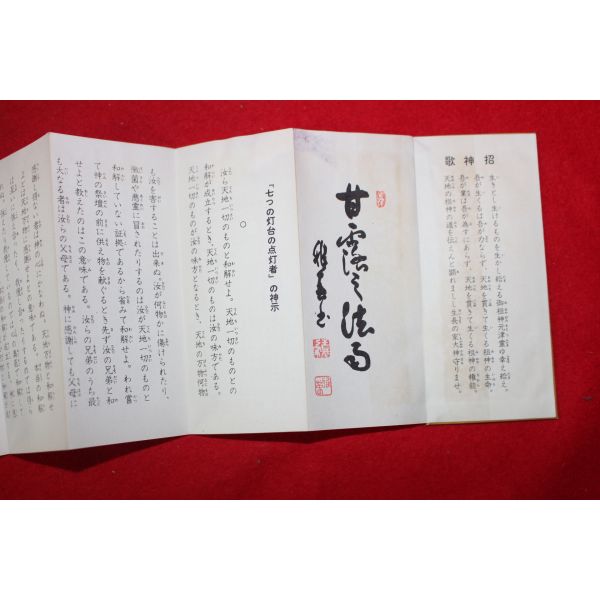 招神歌
生きとし生けるものを生かし給える御祖神元津霊ゆ幸え給え。
吾が生くるは吾が力ならず、天地を貫きて生くる祖神の生命。
吾が業は吾が為すにあらず、天地を貫きて生くる祖神の権能。
天地の祖神の道を伝えんと顕れましし生長の家大神守りませ。
甘露之法雨
雅春書
「七つの灯台の点灯者」の神示
○
汝ら天地一切のものと和解せよ。天地一切のものとの
和解が成立するとき、天地一切のものは汝の味方である。
天地一切のものが汝の味方となるとき、天地の万物何物
も汝を害することは出来ぬ。汝が何物かに傷けられたり、
黴菌や悪霊に冒されたりするのは汝が天地一切のものと
和解していない証拠であるから省みて和解せよ。われ嘗
て神の祭壇の前に供え物を献ぐるとき先ず汝の兄弟と和
せよと教えたのはこの意味である。汝らの兄弟のうち最
も大なる者は汝らの父母である。神に感謝しても父母に